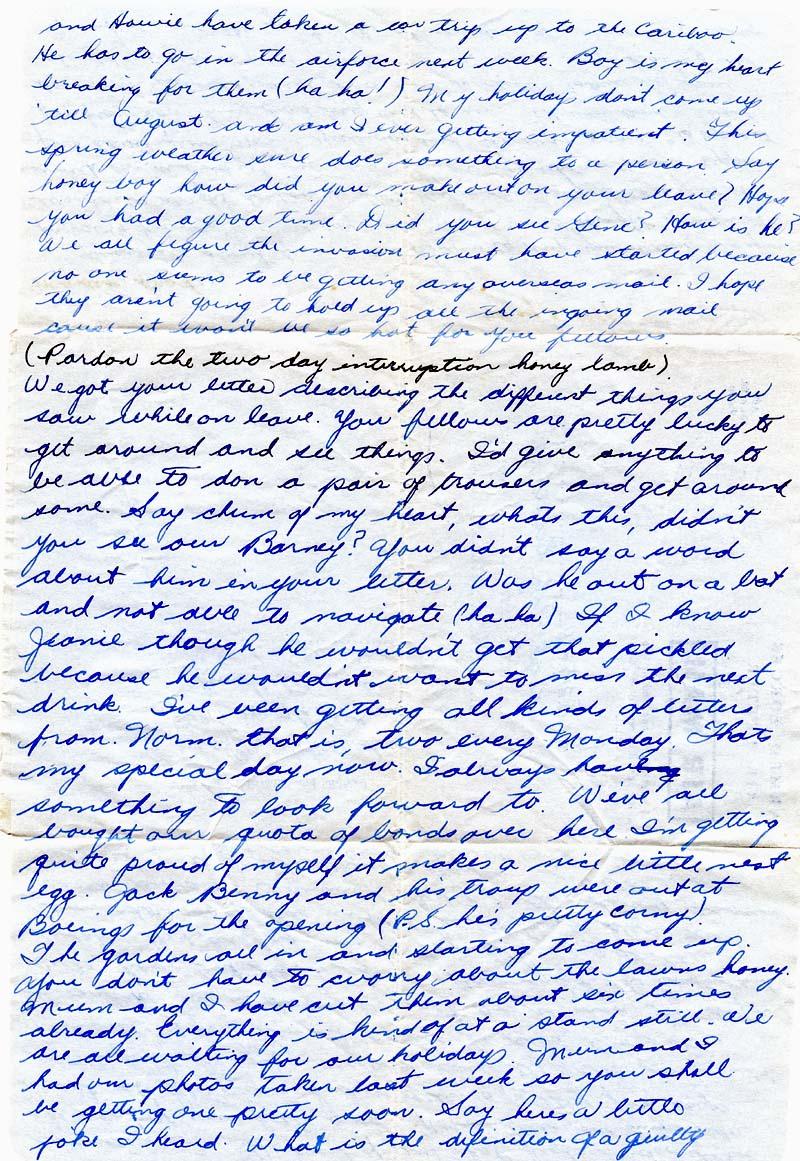 and Howie have taken a car trip up to the Cariboo.
He has to go in the airforce next week. Boy is my heart
breaking for them (ha ha!) My holidays don't come up
'till August and am I ever getting impatient. This
spring weather sure does something to a person. Say
honey boy how did you make out on your leave? Hope
you had a good time. Did you see Gene? How is he?
We all figure the invasion must have started because
no one seems to be getting any overseas mail. I hope
they aren't going to hold up all the ingoing mail
cause it won't be so hot for you fellows.
(Pardon the two day interruption honey lamb)
We got your letter describing the different things you
saw while on leave. You fellows are pretty lucky to
get around and see things. I'd give anything to
be able to don a pair of trousers and get around
some. Say chum of my heart, whats this, didn't
you see our Barney? You didn't say a word
about him in your letter. Was he out on a bat
and not able to navigate (ha ha) If I know
Jeanie though he wouldn't get that pickled
because he wouldn't want to miss the next
drink. I've been getting all kinds of letters
from. Norm. that is, two every Monday. Thats
my special day now. I always have
something to look forward to. We've all
bought our quota of bonds over here. I'm getting
quite proud of myself it makes a nice little nest
egg. Jack Benny and his troup were out at
Boeings for the opening (P.S. he's pretty corny)
The gardens all in and starting to come up.
You don't have to worry about the lawns honey.
Mum and I have cut them about six times
already. Everything is kind of at a stand still. We
are all waiting for our holidays. Mum and I
had our photos taken last week so you shall
be getting one pretty soon. Say heres a little
joke I heard. What is the definition of a guilty